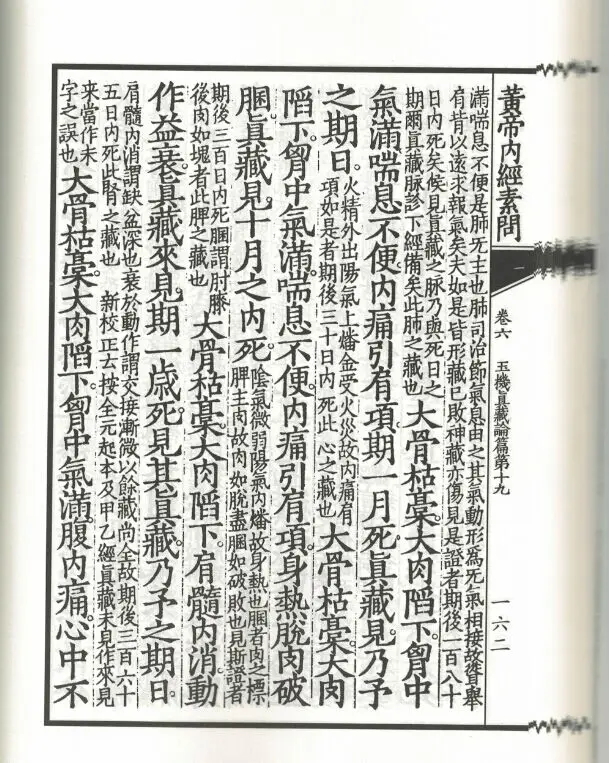 黃帝內經素問
卷六 玉機真藏論篇第十九
一六二
滿喘息不便是肺无主也肺司治節氣息由之其氣動形為死氣相接故聳舉
肩背以遠求報氣矣夫如是皆形藏已敗神藏亦傷見是證者期後一百八十
日內死矣候見真藏之脉乃與死日之
期爾真藏脉診下經備矣此肺之藏也
大骨枯槀大肉陷下胷中
氣滿喘息不便內痛引肩項期一月死真藏見乃予
之期日
火精外出陽氣上燔金受火災故內痛肩
項如是者期後三十日內死此心之藏也
大骨枯槀大肉
陷下胷中氣滿喘息不便內痛引肩項身熱脫肉破
䐃真藏見十月之內死
陰氣微弱陽氣內燔故身熱也䐃者肉之標
脾主肉故肉如脫盡䐃如破敗也見斯證者
期後三百日內死䐃謂肘膝
後肉如塊者此脾之藏也
大骨枯槀大肉陷下肩髓內消動
作益衰真藏來見期一歲死見其真藏乃予之期日
肩髓內消謂缺盆深也衰於動作謂交接漸微以餘藏尚全故期後三百六十
五日內死此腎之藏也 新校正云按全元起本及甲乙經真藏未見作來見
來當作未
字之誤也
大骨枯槀大肉陷下胷中氣滿腹內痛心中不